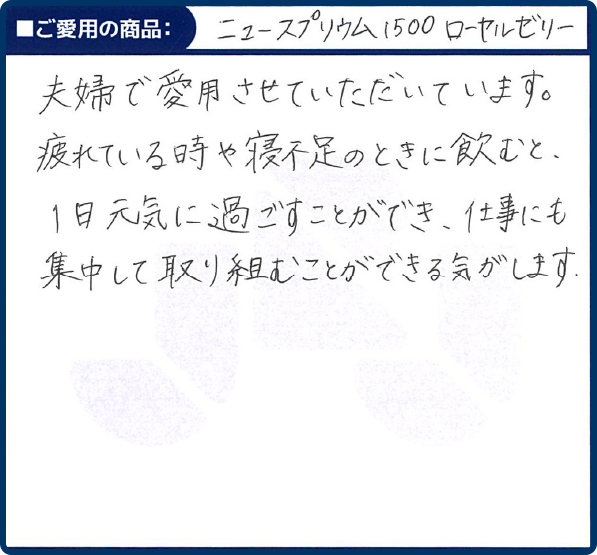 ■ご愛用の商品：ニュースプリウム1500 ローヤルゼリー
夫婦で愛用させていただいています。
疲れている時や寝不足のときに飲むと、
1日元気に過ごすことができ、仕事にも
集中して取り組むことができる気がします.